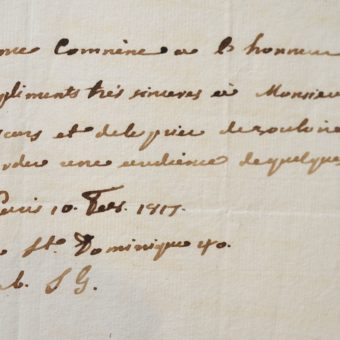 me Comnène a l'honneur
pliments très sinceres à Monsieur
et de le prier de vouloir
une audience de quelques
Paris 10. Fev. 1817.
Ste. Dominique 40.
b. S G.